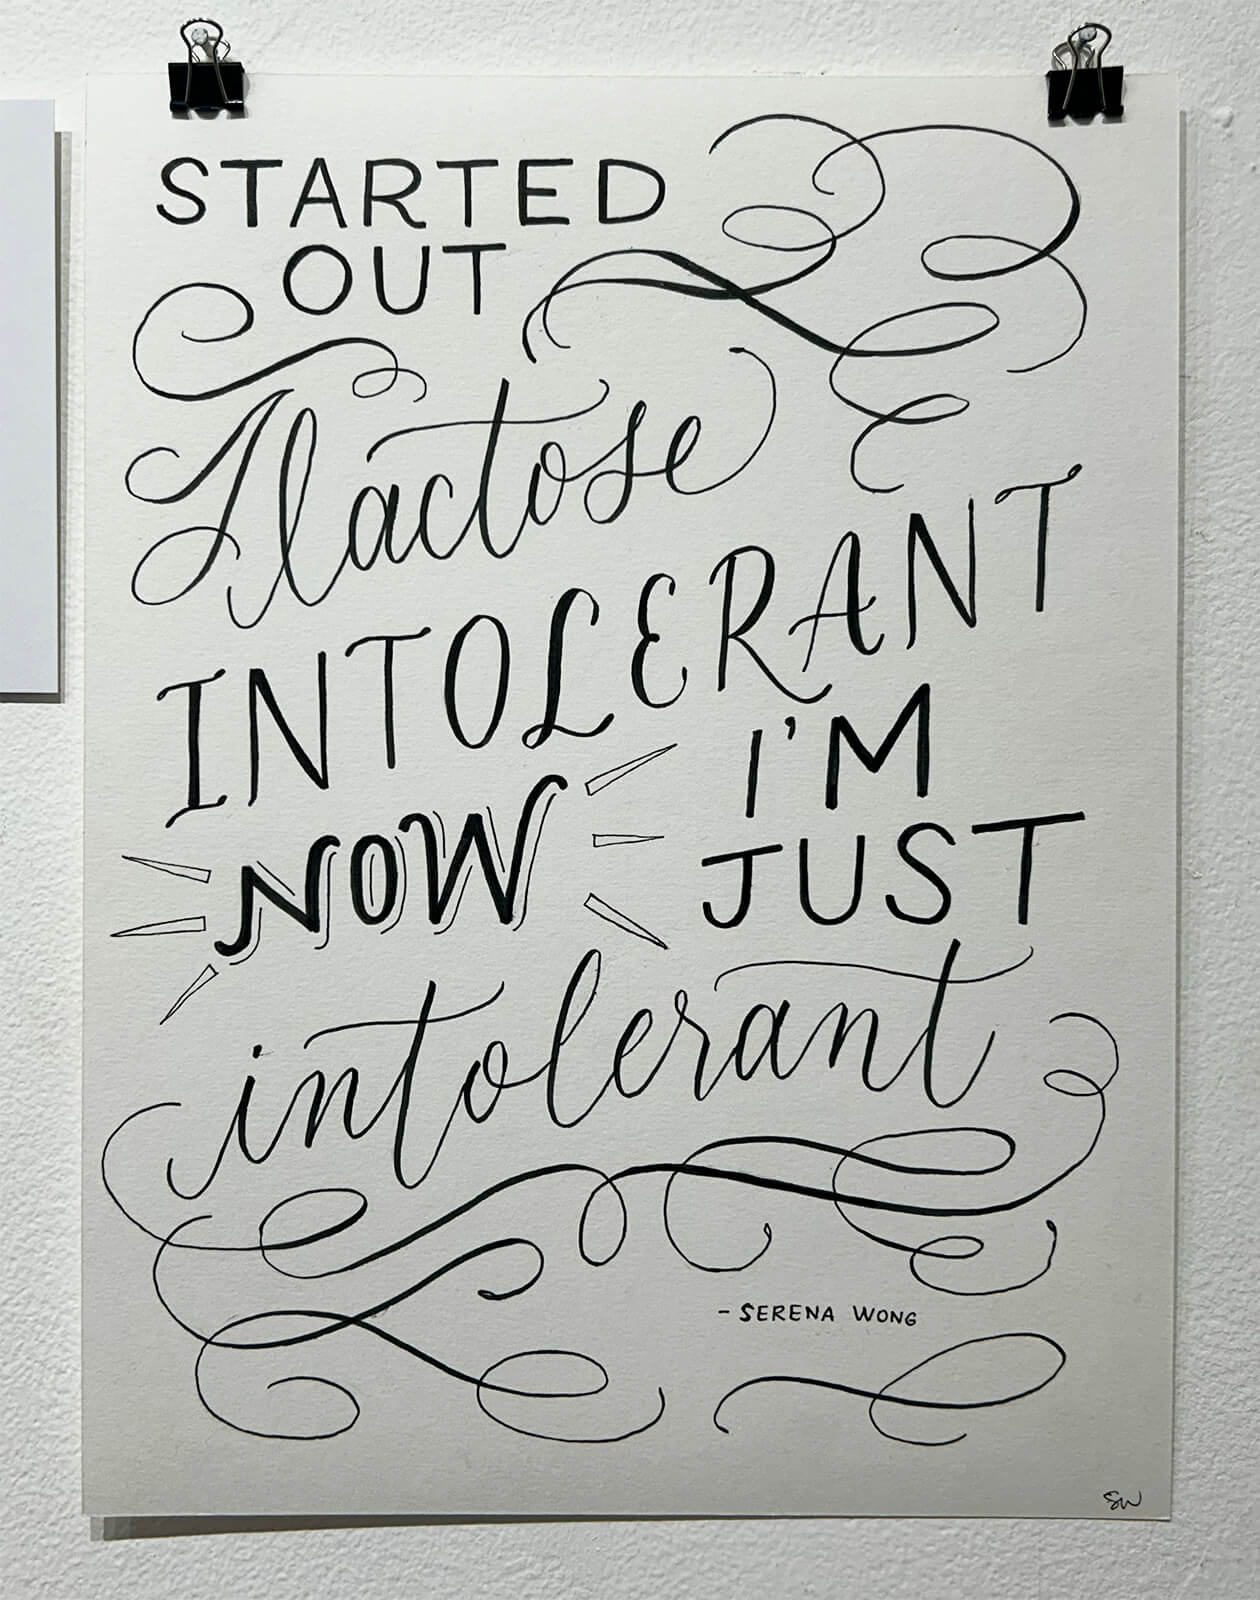 STARTED
OUT
lactose
INTOLERANT
NOW I'M
JUST
intolerant
- SERENA WONG
SW